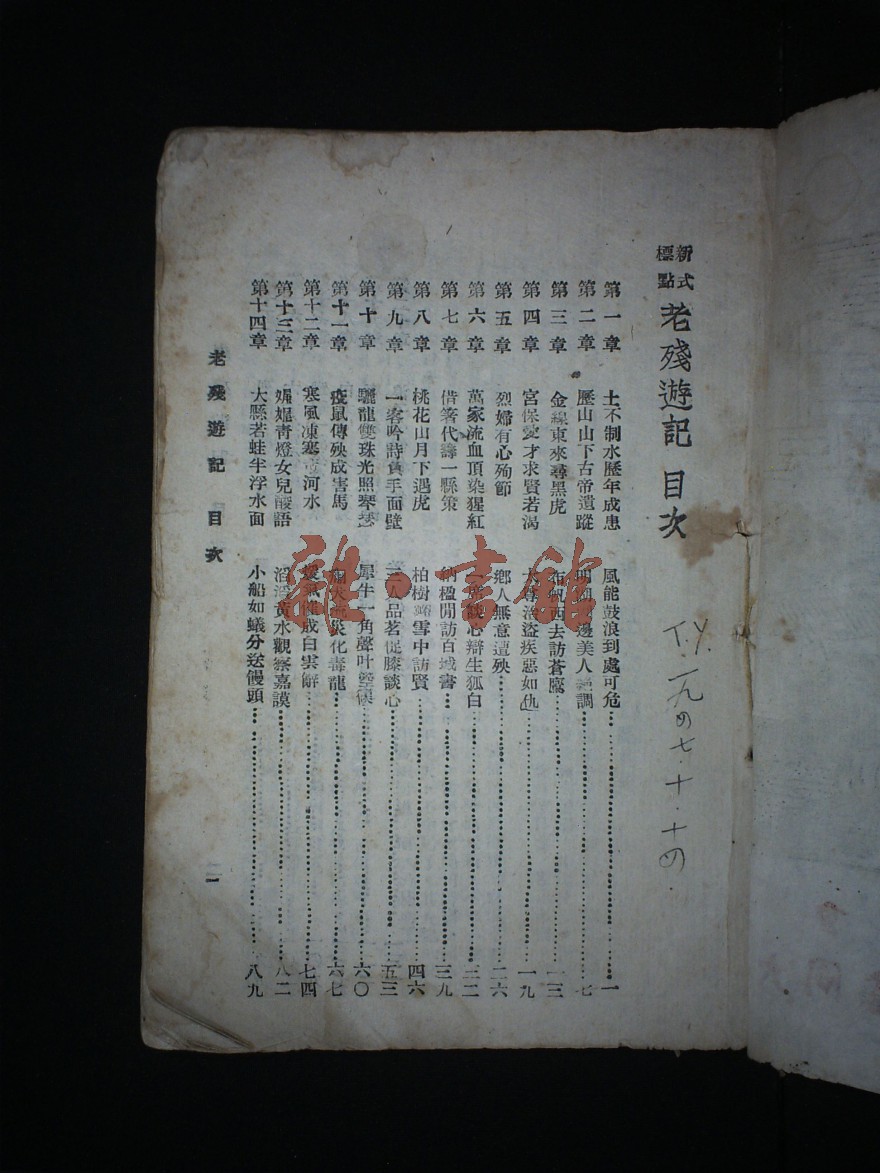 新式標點 老殘遊記 目次
T.Y. 一九四七·十·十四.
第一章 土不制水歷年成患 風能鼓浪到處可危 一
第二章 歷山山下古帝遺蹤 明湖 邊美人 調 七
第三章 金線東來尋黑虎 布帆西去訪蒼鷹 一三
第四章 宮保愛才求賢若渴 太尊治盜疾惡如仇 一九
第五章 烈婦有心殉節 鄉人無意遭殃 二六
第六章 萬家流血頂染猩紅 一席談心辯生狐白 三二
第七章 借箸代籌一縣策 納楹閒訪百城書 三九
第八章 桃花山月下遇虎 柏樹峪雪中訪賢 四六
第九章 一客吟詩負手面壁 三人品茗促膝談心 五三
第十章 驪龍雙珠光照琴瑟 犀牛一角聲叶箜篌 六〇
第十一章 疫鼠傳殃成害馬 犬流災化毒龍 六七
第十二章 寒風凍塞 河水 暖氣催成白雲辭 七四
第十三章 娓娓青燈女兒酸語 滔滔黃水觀察嘉謨 八二
第十四章 大縣若蛙半浮水面 小船如蟻分送饅頭 八九
老殘遊記 目次
一
雜·書館